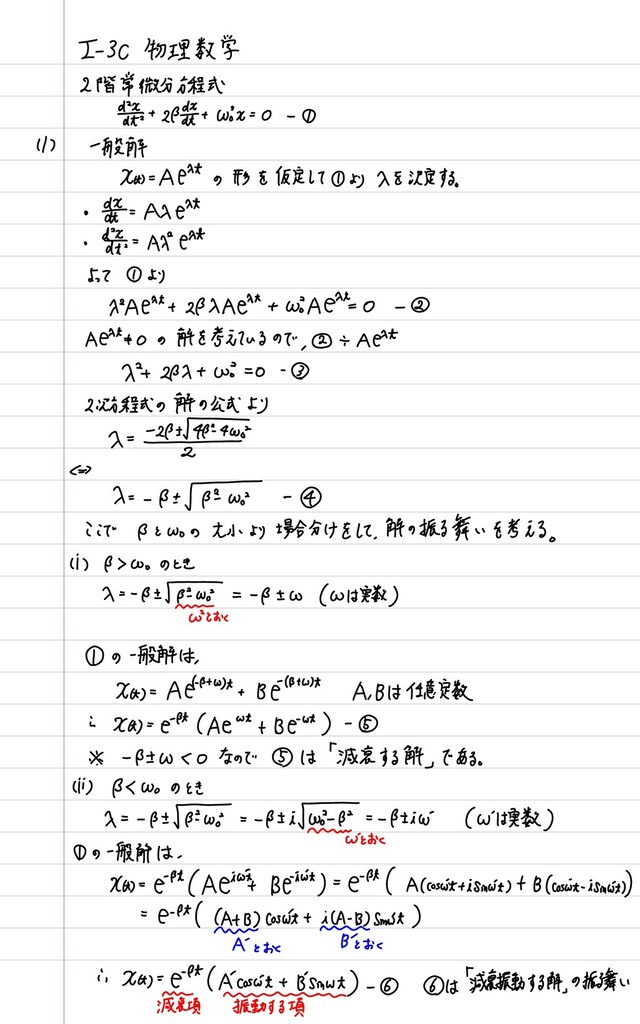 I-3C 物理数学
2階常微分方程式
d²x/dt² + 2β dx/dt + ω₀²x = 0 - ①
(1) 一般解
x(t) = Ae^{λt} の形を仮定して①よりλを決定する。
・ dx/dt = Aλe^{λt}
・ d²x/dt² = Aλ²e^{λt}
よって ①より
λ²Ae^{λt} + 2βλAe^{λt} + ω₀²Ae^{λt} = 0 - ②
Ae^{λt} ≠ 0 の解を考えているので、② ÷ Ae^{λt}
λ² + 2βλ + ω₀² = 0 - ③
2次方程式の解の公式より
λ = (-2β ± √(4β² - 4ω₀²))/2
⇔
λ = -β ± √(β² - ω₀²) - ④
ここで βとω₀の大小より場合分けをして、解の振る舞いを考える。
(i) β > ω₀ のとき
λ = -β ± √(β² - ω₀²) = -β ± ω (ωは実数)
ω²とおく
①の一般解は、
x(t) = Ae^{(-β+ω)t} + Be^{-(β+ω)t} A, Bは任意定数
∴ x(t) = e^{-βt} (Ae^{ωt} + Be^{-ωt}) - ⑤
※ -β ± ω < 0 なので ⑤は「減衰する解」である。
(ii) β < ω₀ のとき
λ = -β ± √(β² - ω₀²) = -β ± i√(ω₀² - β²) = -β ± iω' (ω'は実数)
ω'とおく
①の一般解は、
x(t) = e^{-βt} (Ae^{iω't} + Be^{-iω't}) = e^{-βt} ( A(cosω't + isinω't) + B(cosω't - isinω't)
= e^{-βt} ( (A+B) cosω't + i(A-B) sinω't )
A'とおく B'とおく
∴ x(t) = e^{-βt} (A'cosω't + B'sinωt) - ⑥ ⑥は「減衰振動する解」の振る舞い
減衰項 振動する項